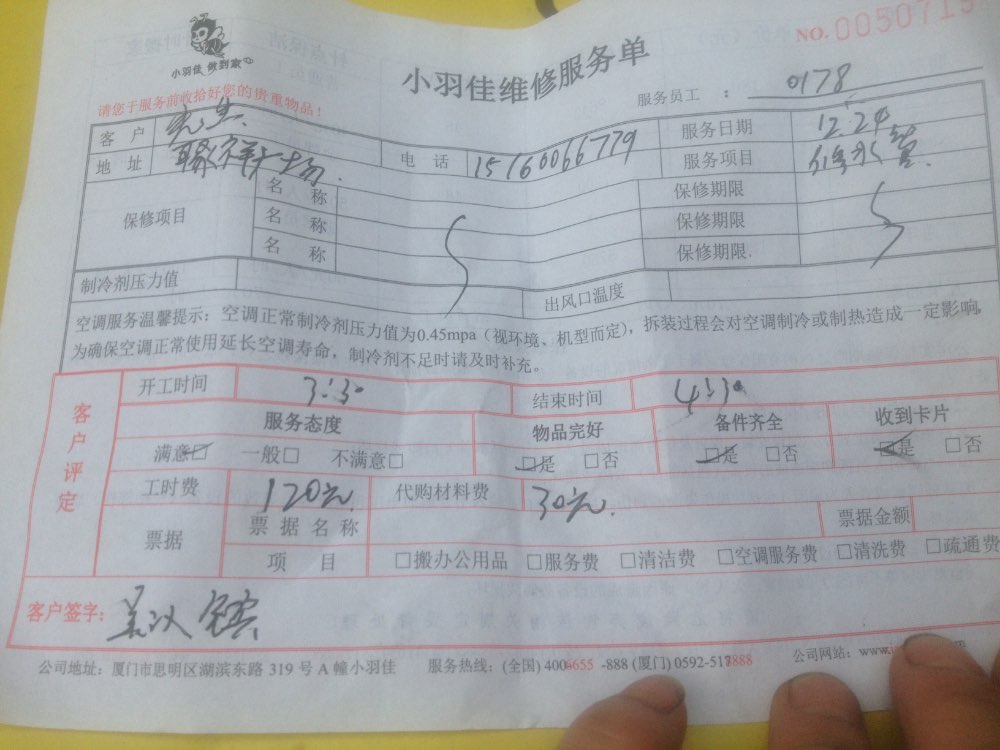 小羽佳 做到家
小羽佳维修服务单
NO. 0050715
请您于服务前收拾好您的贵重物品！
服务员工 ： 0178
客 户 先生 电 话 15160066779 服务日期 12.24
地 址 服务项目 修水管
保修项目
名 称 保修期限
名 称 保修期限
名 称 保修期限
制冷剂压力值 出风口温度
空调服务温馨提示：空调正常制冷剂压力值为0.45mpa（视环境、机型而定），拆装过程会对空调制冷或制热造成一定影响，
为确保空调正常使用延长空调寿命，制冷剂不足时请及时补充。
客户评定
开工时间 3:30 结束时间 4:30
服务态度 物品完好 备件齐全 收到卡片
满意☑ 一般□ 不满意□ ☑是 □否 ☑是 □否 ☑是 □否
工时费 120元 代购材料费 30元.
票据 票据名称 票据金额
项 目 □搬办公用品 □服务费 □清洁费 □空调服务费 □清洗费 □疏通费
客户签字：
公司地址：厦门市思明区湖滨东路 319 号 A 幢小羽佳 服务热线：(全国) 4006655 -888 (厦门) 0592-5178888 公司网站：www.